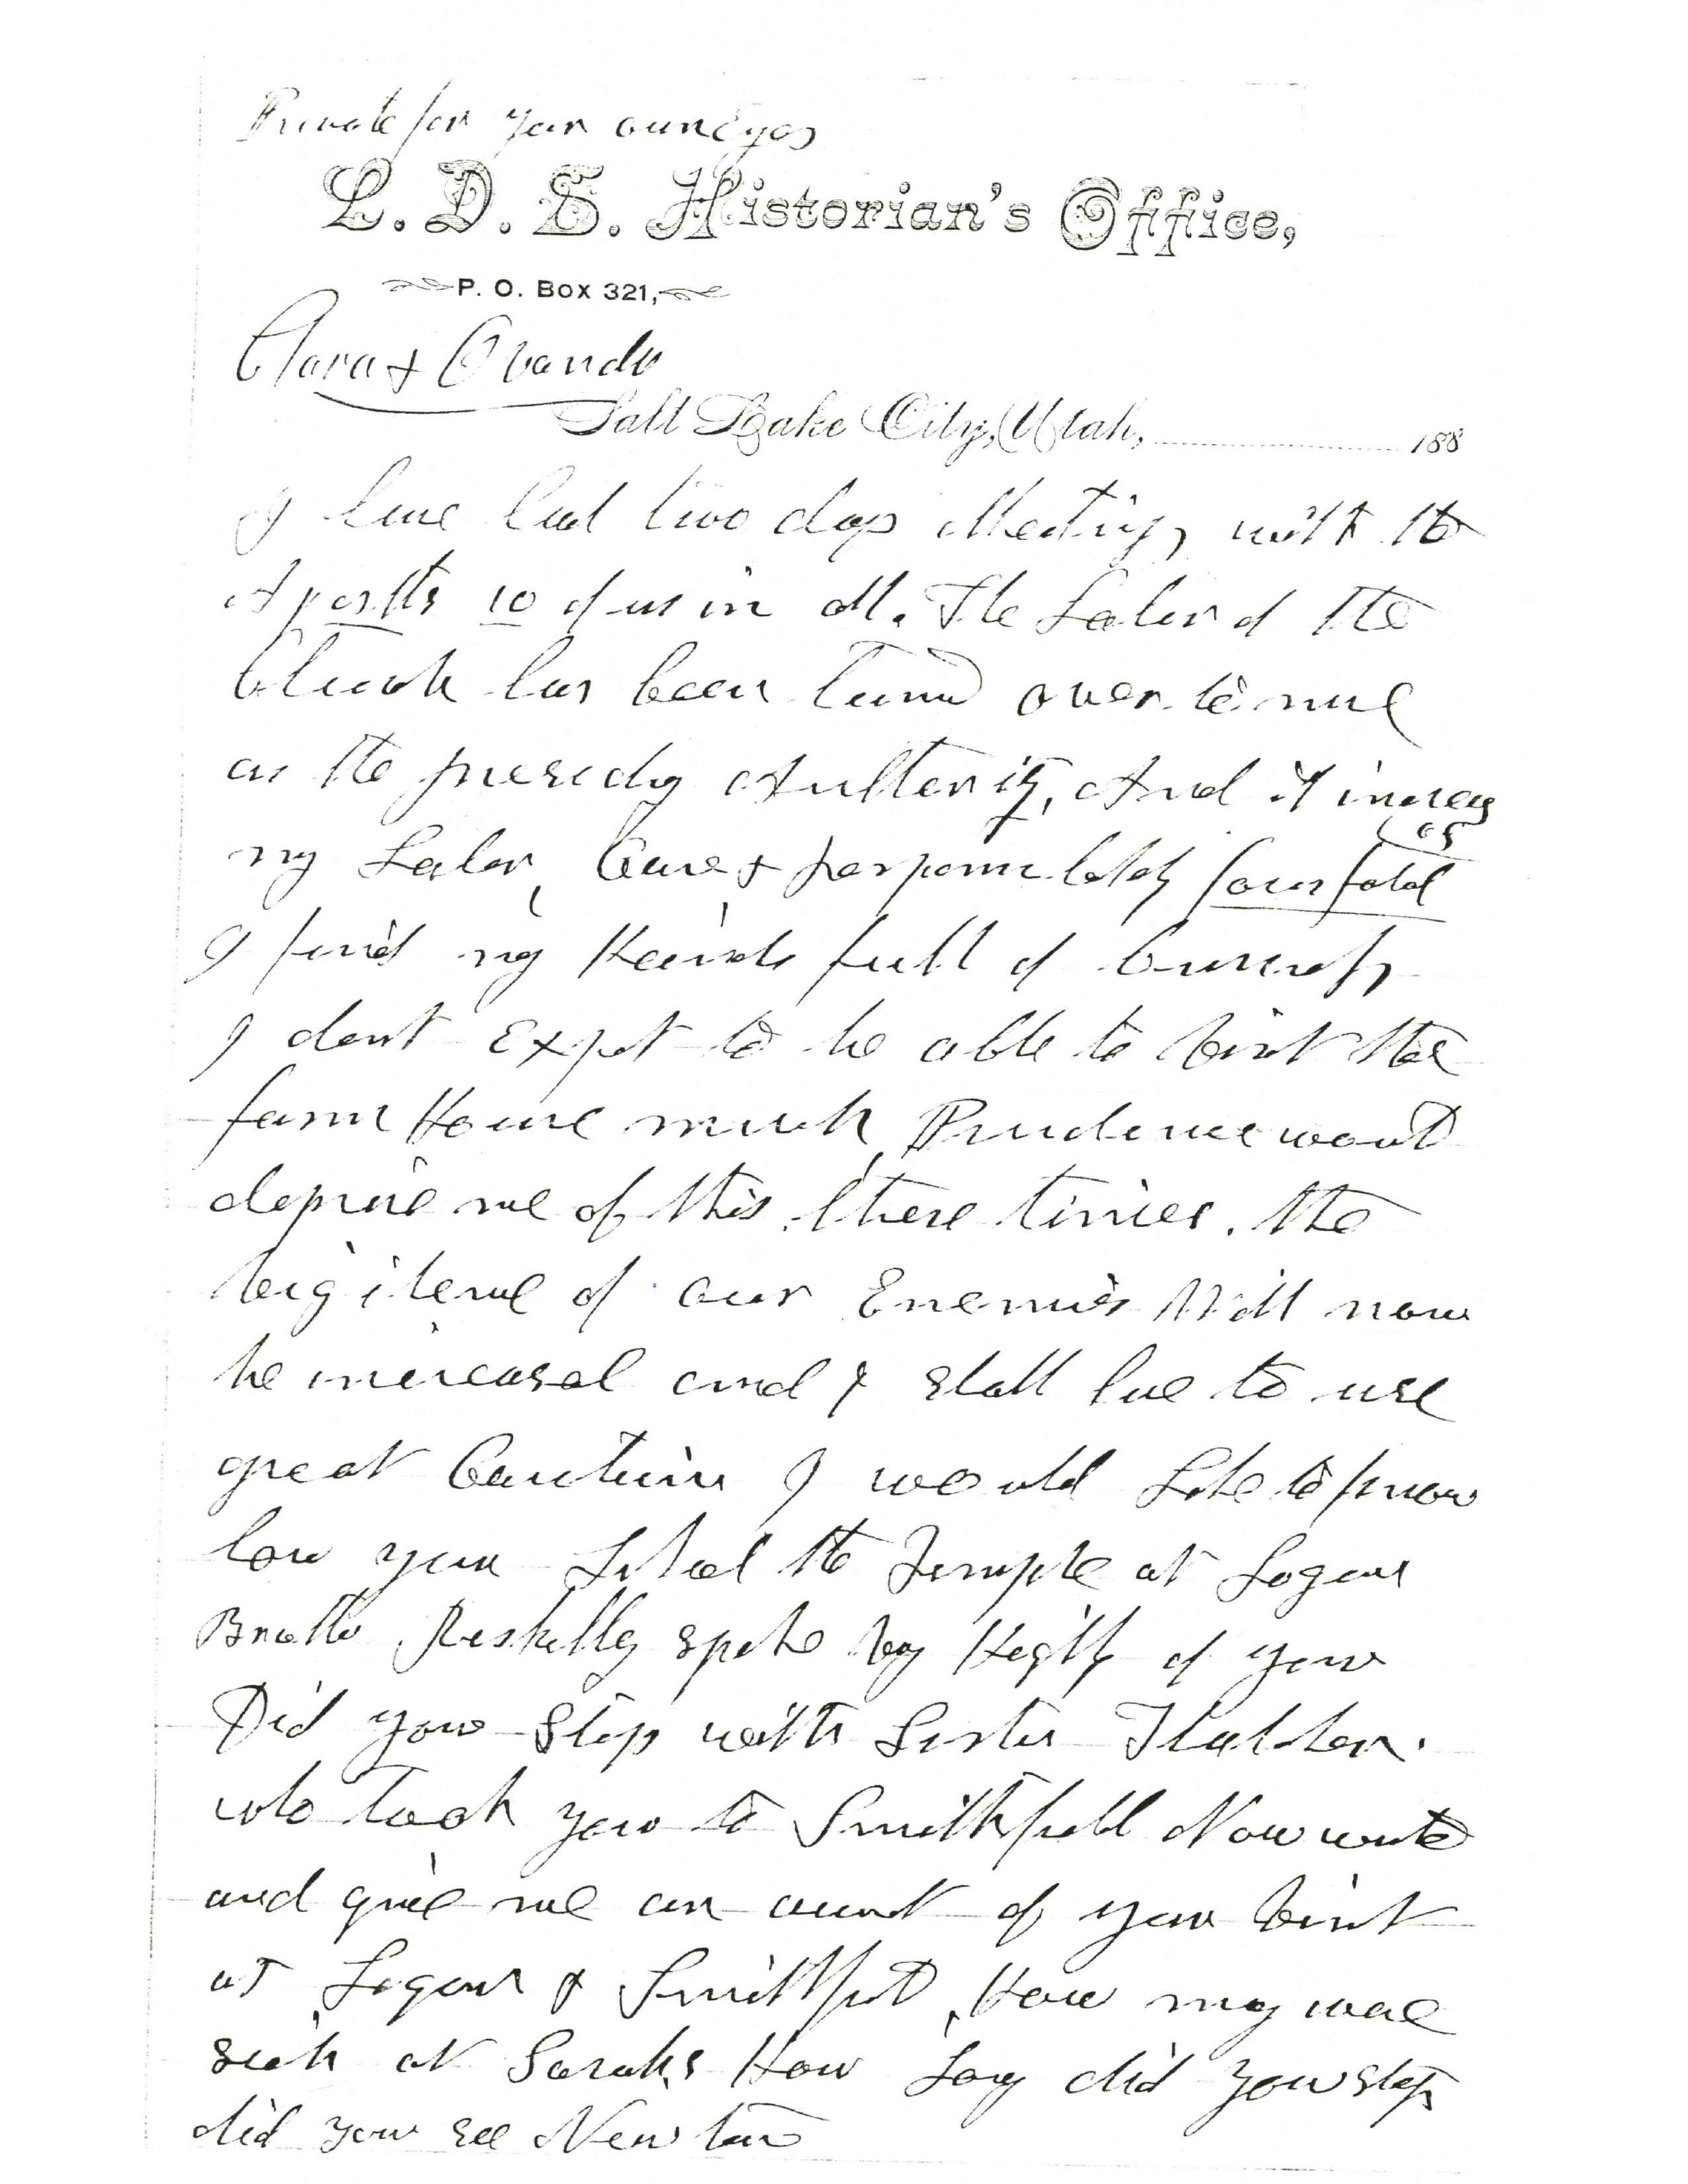 Private for your own Eyes
L. D. S. Historian's Office,
P. O. Box 321,
Clara & Ovando
Salt Lake City, Utah, 188
I have had two days Meeting with the
Apostls 10 of us in all. The Labor of the
Church has been turnd over to me
as the presidg Authority, And it increas
my Labor, Care & responsibility fourfold
I find my Hands full of business
I dont Expet to be able to visit the
farm House much, Prudence would
deprive me of this these times. the
vigilence of our Enemies Will now
be increased and I shall have to use
great Caution I would Like to know
how you Liked the Temple at Logan
Brother spoke vey Highly of you
Did you Stop with Sister Thatcher.
who took you to Smithfield Now write
and give me an account of your visit
at Logan & Smithfield, How many were
sick at Sarahs How Long did you stop
did you see Newton